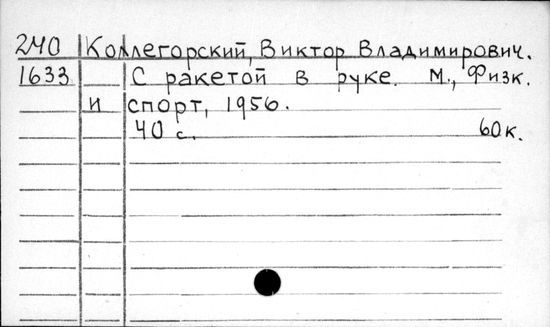 240 Коллегорский, Виктор Владимирович.
1633 С ракетой в руке. М., Физк.
и спорт, 1956.
40 с. 60к.